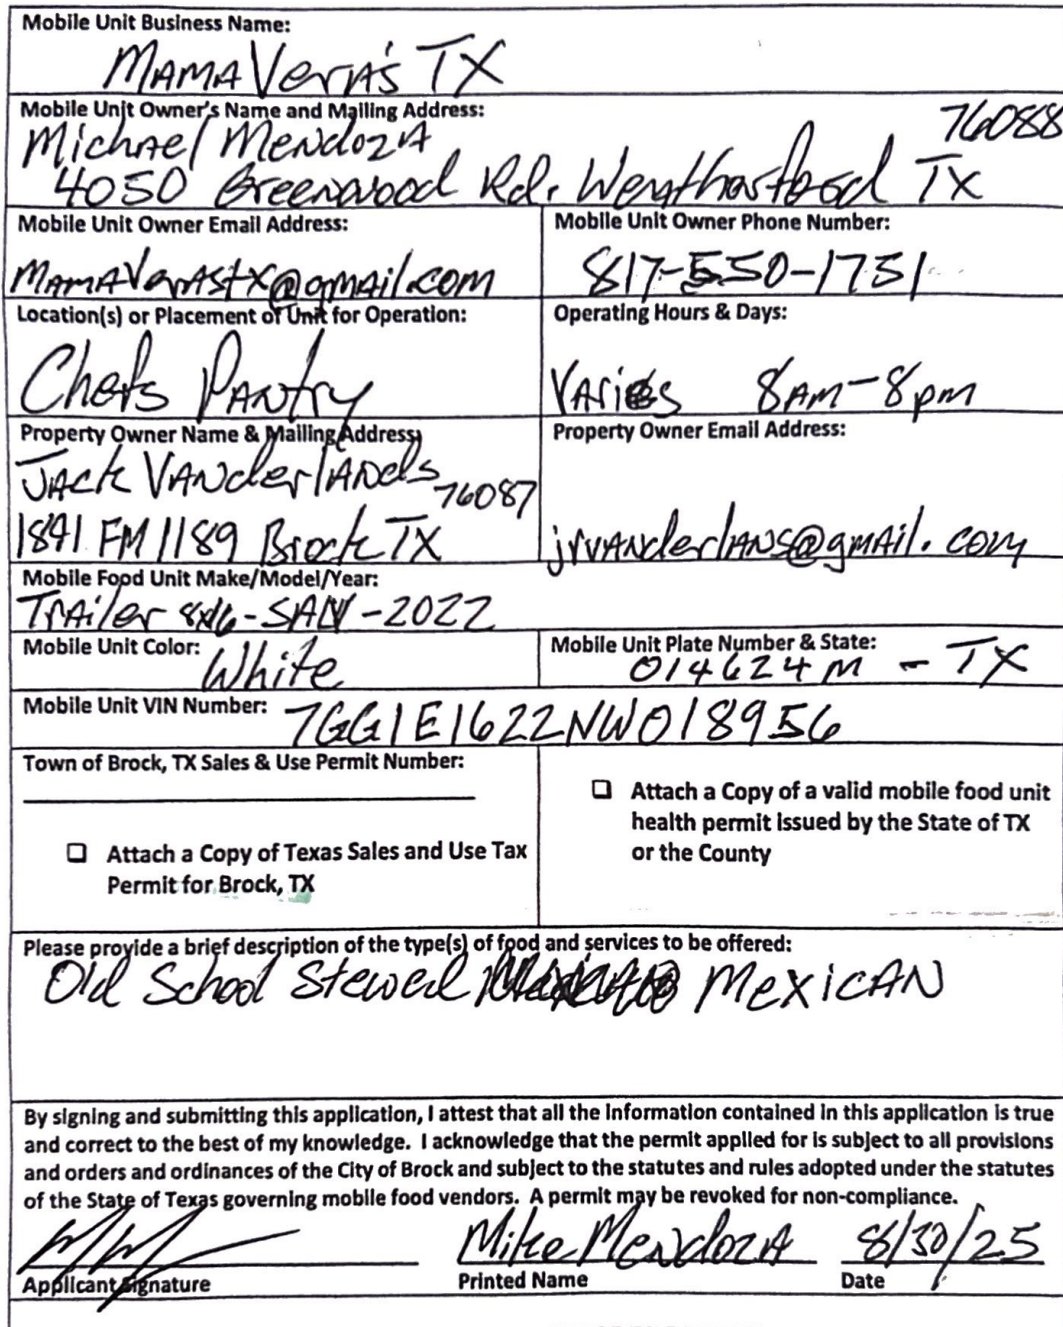 Mobile Unit Business Name:
MAMA Vera's TX
Mobile Unit Owner's Name and Mailing Address:
Michael Mendoza 76088
4050 Greenwood Rd. Weatherford TX
Mobile Unit Owner Email Address:
MamaVerastx@gmail.com
Mobile Unit Owner Phone Number:
817-550-1751
Location(s) or Placement of Unit for Operation:
Chefs Pantry
Operating Hours & Days:
Varies 8AM-8pm
Property Owner Name & Mailing Address
Jack Vanderlands
76087
1841 FM 1189 Brock TX
Property Owner Email Address:
jrvanderlans@gmail.com
Mobile Food Unit Make/Model/Year:
Trailer 8x16-SAN-2022
Mobile Unit Color: White
Mobile Unit Plate Number & State:
014624M - TX
Mobile Unit VIN Number: 7GG1E1622NW018956
Town of Brock, TX Sales & Use Permit Number:
Attach a Copy of Texas Sales and Use Tax
Permit for Brock, TX
Attach a Copy of a valid mobile food unit
health permit issued by the State of TX
or the County
Please provide a brief description of the type(s) of food and services to be offered:
Old School Stewed Mexican
By signing and submitting this application, I attest that all the information contained in this application is true
and correct to the best of my knowledge. I acknowledge that the permit applied for is subject to all provisions
and orders and ordinances of the City of Brock and subject to the statutes and rules adopted under the statutes
of the State of Texas governing mobile food vendors. A permit may be revoked for non-compliance.
Mike Mendoza 8/30/25
Applicant Signature Printed Name Date